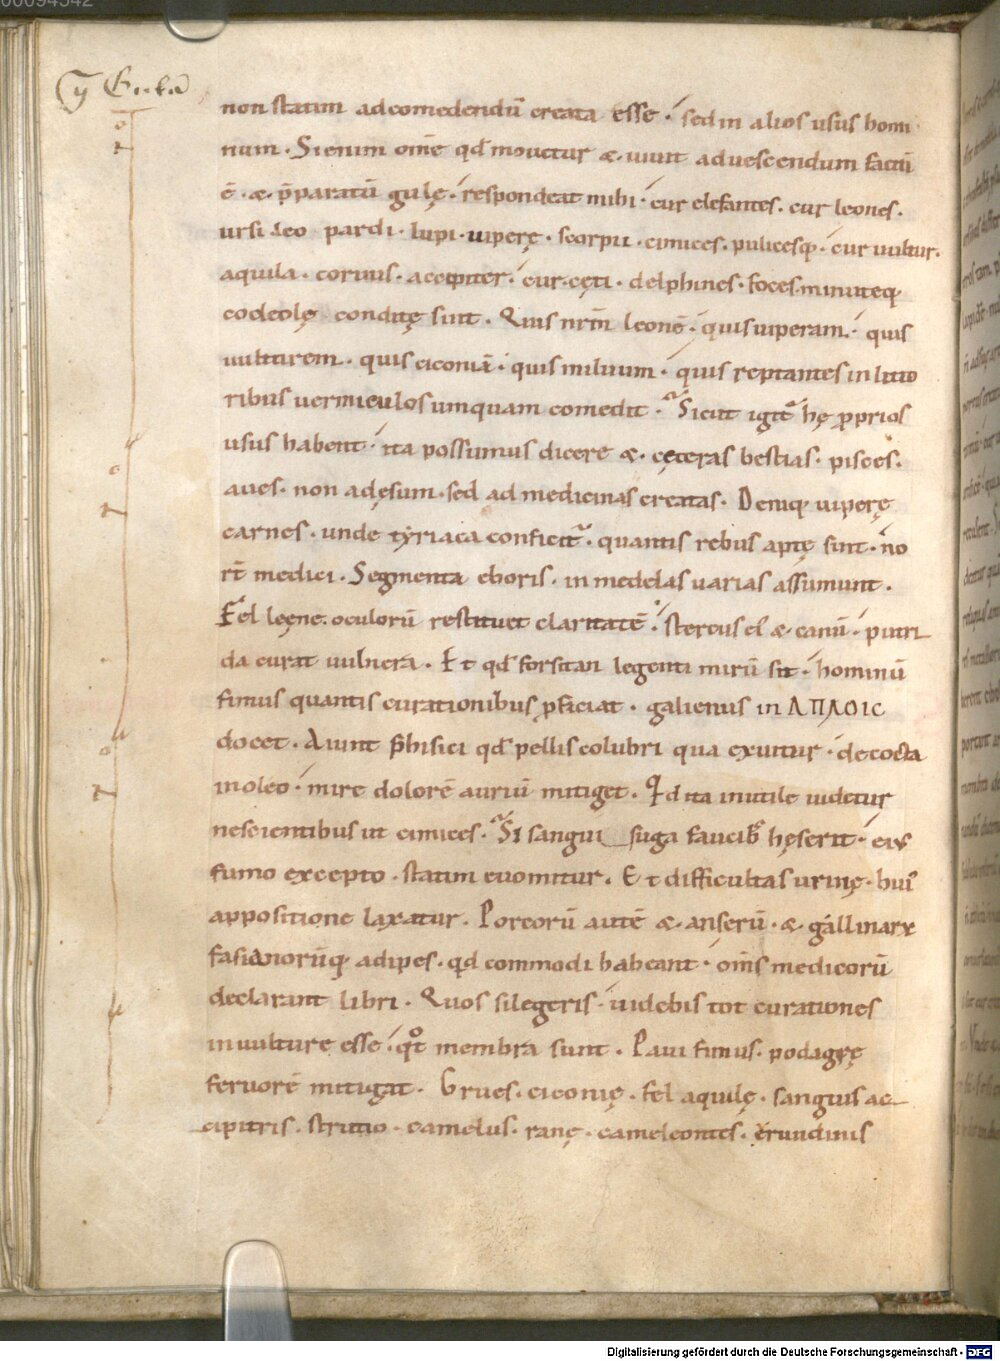 non statim ad comedendū creata esse · sed in alios usus homi
num · Si enim om̄e qd̄ mouetur & uiuit ad uescendum factū
ē · & p̄paratū gulę · respondeat mihi · cur elefantes · cur leones ·
ursi · leo pardi · lupi · uiperę · scorpii · cimices · pulicesq; · cur uultur ·
aquila · coruus · accipiter · cur cęti · delphines · foces · minuteq;
cocleolę conditę sint · Quis nr̄m leonē · quis uiperam · quis
uulturem · quis ciconiā · quis miluum · quis reptantes in litto
ribus uermiculos umquam comedit · Sicut igit̄ hę proprios
usus habent · ita possumus dicere & cęteras bestias · pisces ·
aues · non ad ęsum · sed ad medicinas creatas · Deniq; uiperę
carnes · unde tyriaca conficit̄ · quantis rebus aptę sint · no
rt̄ medici · Segmenta eboris · in medelas uarias assumunt ·
Fel leęne · oculorū restituet claritatē · stercus ei & canū · putri
da curat uulnera · Et qd̄ forsitan legenti mirū sit · hominū
fimus quantis curationibus p̄ficiat · galienus in ΑΠΛΟΙC
docet · Aiunt phisici qd̄ pellis colubri qua exuitur · decocta
in oleo · mire dolorē auriū mitiget · Qd ita inutile uidetur
nescientibus ut cimices · Si sangui suga faucib; hęserit · eius
fumo excepto · statim euomitur · Et difficultas urinę · hui'
appositione laxatur · Porcorū autē & anserū · & gallinarū
fasianorūq; adipes · qd commodi habeant · om̄s medicorū
declarant libri · Quos si legeris · uidebis tot curationes
in uulture esse · qot membra sunt · Paui fimus · podagrę
feruorē mitigat · Grues · ciconię · fel aquilę · sanguis ac
cipitris · strutio · camelus · ranę · cameleontes · erundinis
Digitalisierung gefördert durch die Deutsche Forschungsgemeinschaft - DFG